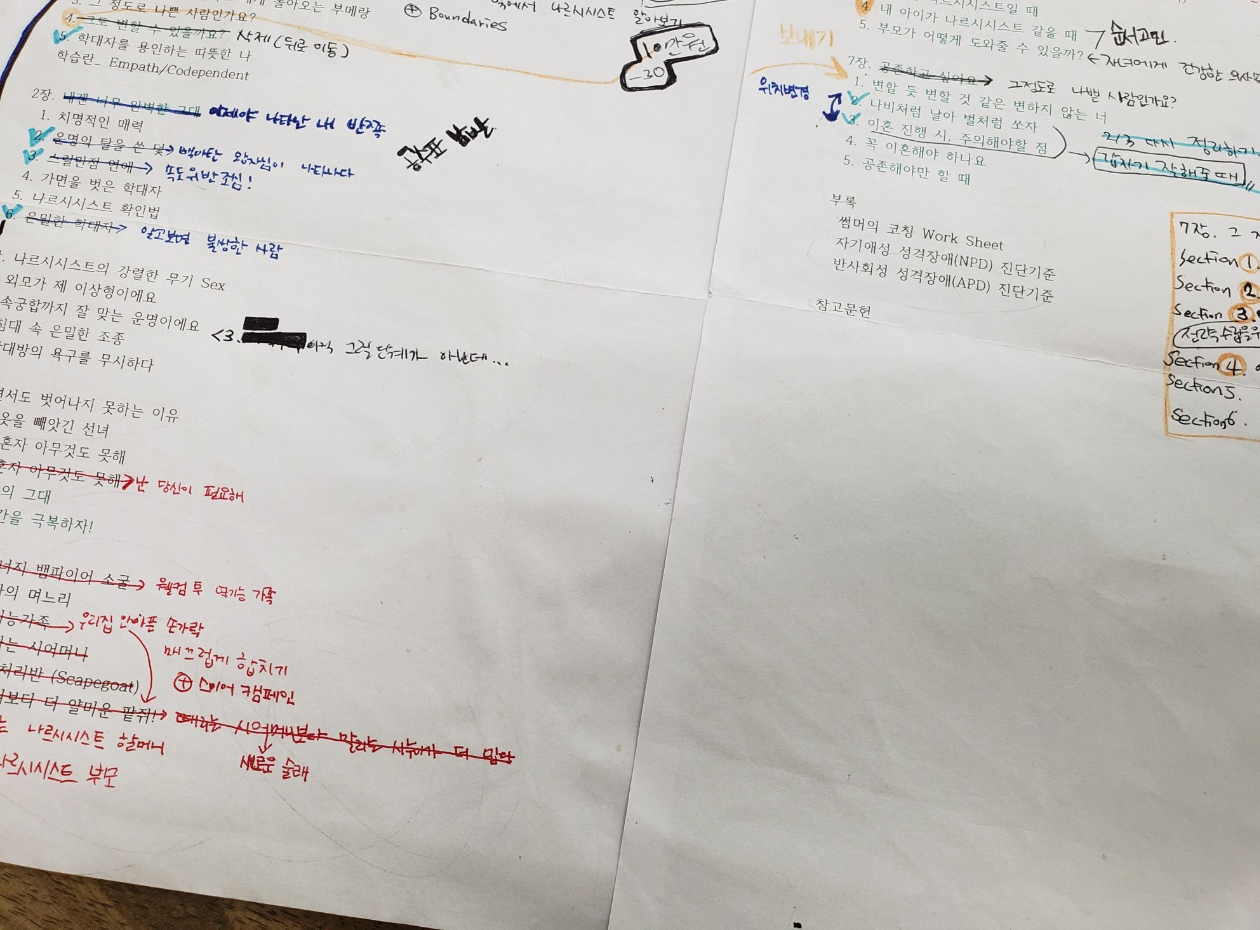 돌아오는 부메랑
3. 그 정도로 나쁜 사람인가요?
4. 그도 변할 수 있을까요? 삭제(뒤로 이동)
5. 학대자를 용인하는 따뜻한 나
학습란_ Empath/Codependent
나르시시스트 알아보기
⊕ Boundaries
-30
2장. 내겐 너무 완벽한 그대 이제야 나타난 내 반쪽
1. 치명적인 매력
2. 운명의 탈을 쓴 덫→ 백마탄 왕자님이 나타나다
3. 스릴만점 연애→ 속도위반조심!
4. 가면을 벗은 학대자
5. 나르시시스트 확인법
6. 은밀한 학대자→ 알고보면 불쌍한 사람
나르시시스트의 강렬한 무기 Sex
외모가 제 이상형이에요
속궁합까지 잘 맞는 운명이에요
침대 속 은밀한 조종
<3. 아직 그럴 단계가 아닌데...
상대방의 욕구를 무시하다
면서도 벗어나지 못하는 이유
옷을 빼앗긴 선녀
혼자 아무것도 못해
혼자 아무것도 못해→난 당신이 필요해
의 그대
간을 극복하자!
너지 뱀파이어 소굴→ 웰컴 투 역기능 가족
의 며느리
기능가족→ 우리집 안아픈 손가락
는 시어머니
매끄럽게 합치기
처리반 (Scapegoat)
⊕ 스미어 캠페인
보다 더 얄미운 팥쥐!→ 때리는 시어머니보다 말리는 시누이가 더 밉다
새로운 술래
는 나르시시스트 할머니
나르시시스트 부모
르시시스트일 때
4. 내 아이가 나르시시스트 같을 때
5. 부모가 어떻게 도와줄 수 있을까?
순서고민.
← 자녀에게 건강한 의사
보내기
7장. 공존하고 싶어요→ 그정도로 나쁜 사람인가요?
위치변경
1. 변할 듯 변할 것 같은 변하지 않는 너
2. 나비처럼 날아 벌처럼 쏘자
3. 이혼 진행 시, 주의해야할 점
4. 꼭 이혼해야 하나요
5. 공존해야만 할 때
2/3 다시 정리하기
갑자기 잘해줄 때
부록
썸머의 코칭 Work Sheet
자기애성 성격장애(NPD) 진단기준
반사회성 성격장애(APD) 진단기준
참고문헌
7장. 그
Section 1.
Section 2.
Section 3.
Section 4.
Section5.
Section6.